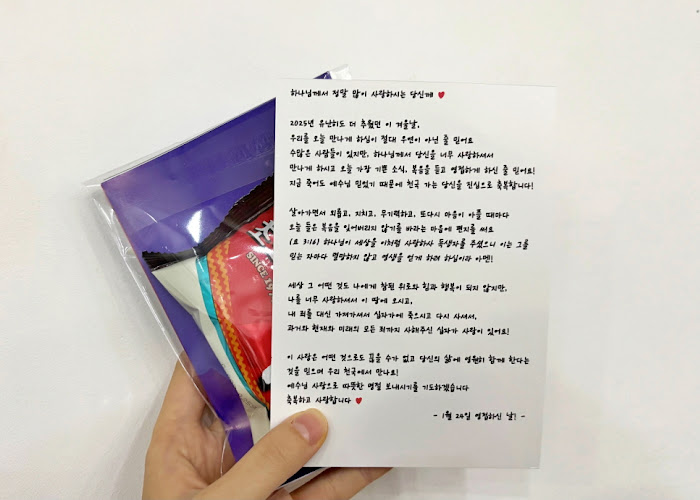 하나님께서 정말 많이 사랑하시는 당신께 ❤
2025년 유난히도 더 추웠던 이 겨울날,
우리를 오늘 만나게 하심이 절대 우연이 아닌 줄 믿어요
수많은 사람들이 있지만, 하나님께서 당신을 너무 사랑하셔서
만나게 하시고 오늘 가장 기쁜 소식, 복음을 듣고 영접하게 하신 줄 믿어요!
지금 죽어도 예수님 믿었기 때문에 천국 가는 당신을 진심으로 축복합니다!
살아가면서 외롭고, 지치고, 무기력하고, 또다시 마음이 아플 때마다
오늘 들은 복음을 잊어버리지 않기를 바라는 마음에 편지를 써요
(요 3:16) 하나님이 세상을 이처럼 사랑하사 독생자를 주셨으니 이는 그를
믿는 자마다 멸망하지 않고 영생을 얻게 하려 하심이라 아멘!
세상 그 어떤 것도 나에게 참된 위로와 힘과 행복이 되지 않지만,
나를 너무 사랑하셔서 이 땅에 오시고,
내 죄를 대신 가져가셔서 십자가에 죽으시고 다시 사셔서,
과거와 현재와 미래의 모든 죄까지 사해주신 십자가 사랑이 있어요!
이 사랑은 어떤 것으로도 끊을 수가 없고 당신의 삶에 영원히 함께 한다는
것을 믿으며 우리 천국에서 만나요!
예수님 사랑으로 따뜻한 명절 보내시기를 기도하겠습니다
축복하고 사랑합니다 ❤
- 1월 24일 영접하신 날! -
SINCE 19